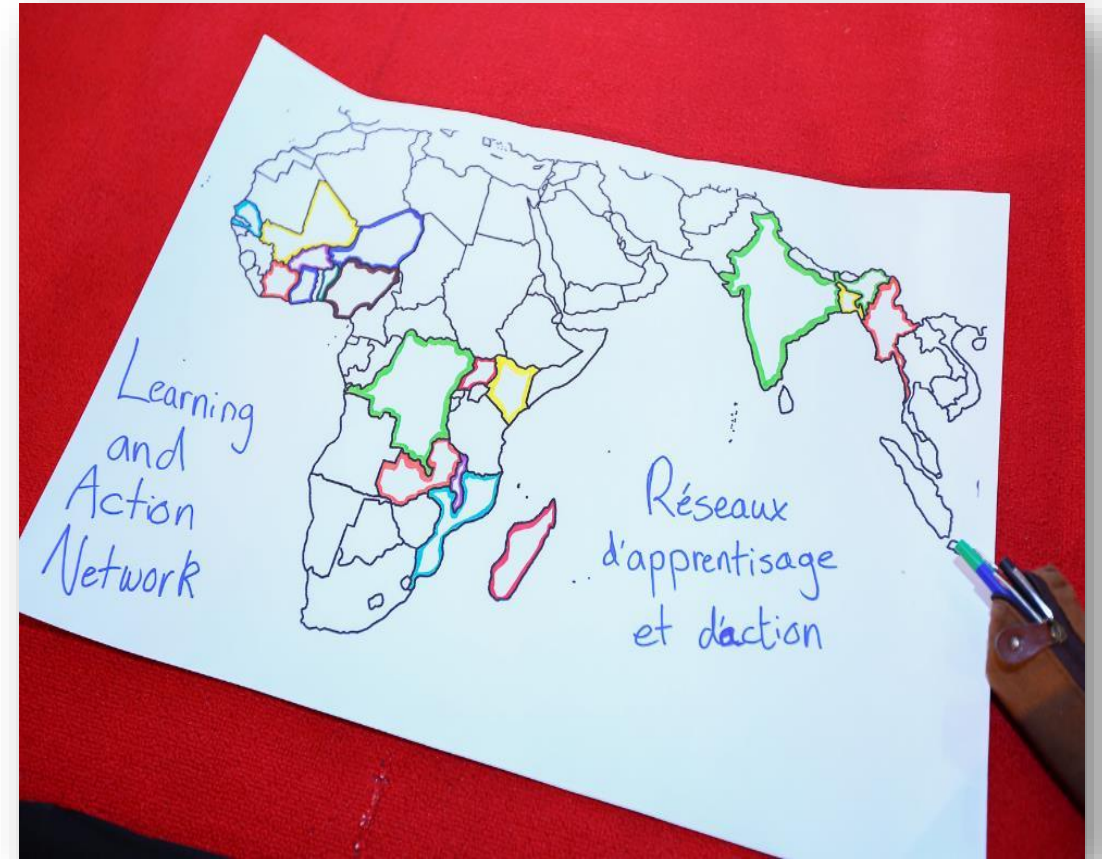 Learning
and
Action
Network
Réseaux
d'apprentisage
et d'action